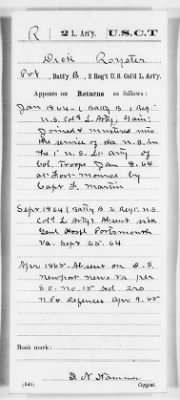 R | 2 L. Art'y. | U.S.C.T
Dick Royster
Pvt, Batt'y B, 2 Reg't U.S. Col'd L. Art'y.
Appears on Returns as follows:
Jan 1864 (Batty B, 2 Regt.
U.S. Cold L. Arty, Gain:
Joined & mustered into
the service of the U.S. in
the 1" U.S. Lt. Arty of
Col. Troops Jan 8. 64
at Fort Monroe by
Capt L. Martin
Sept 1864 (Batty B 2 Regt. U.S.
Cold L. Arty) Absent sick
Genl Hospl Portsmouth
Va. Sept 25. 64
Apr 1865 Absent on D.S.
Newport news Va per
S.O. No. 15 Hd
N.P. defences Apr 9. 65
Book mark:
Copyist.